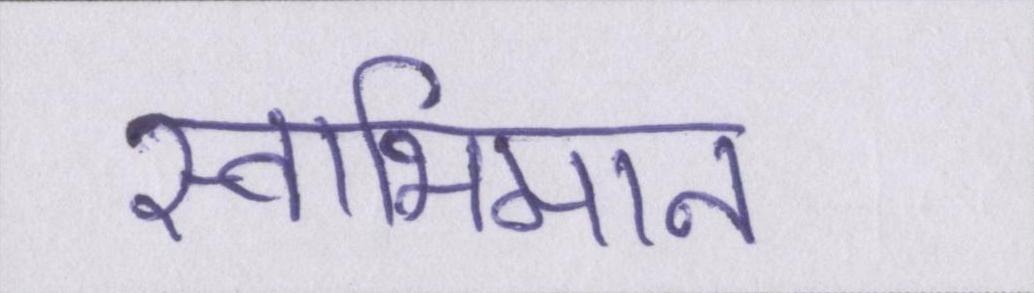 स्वाभिमान